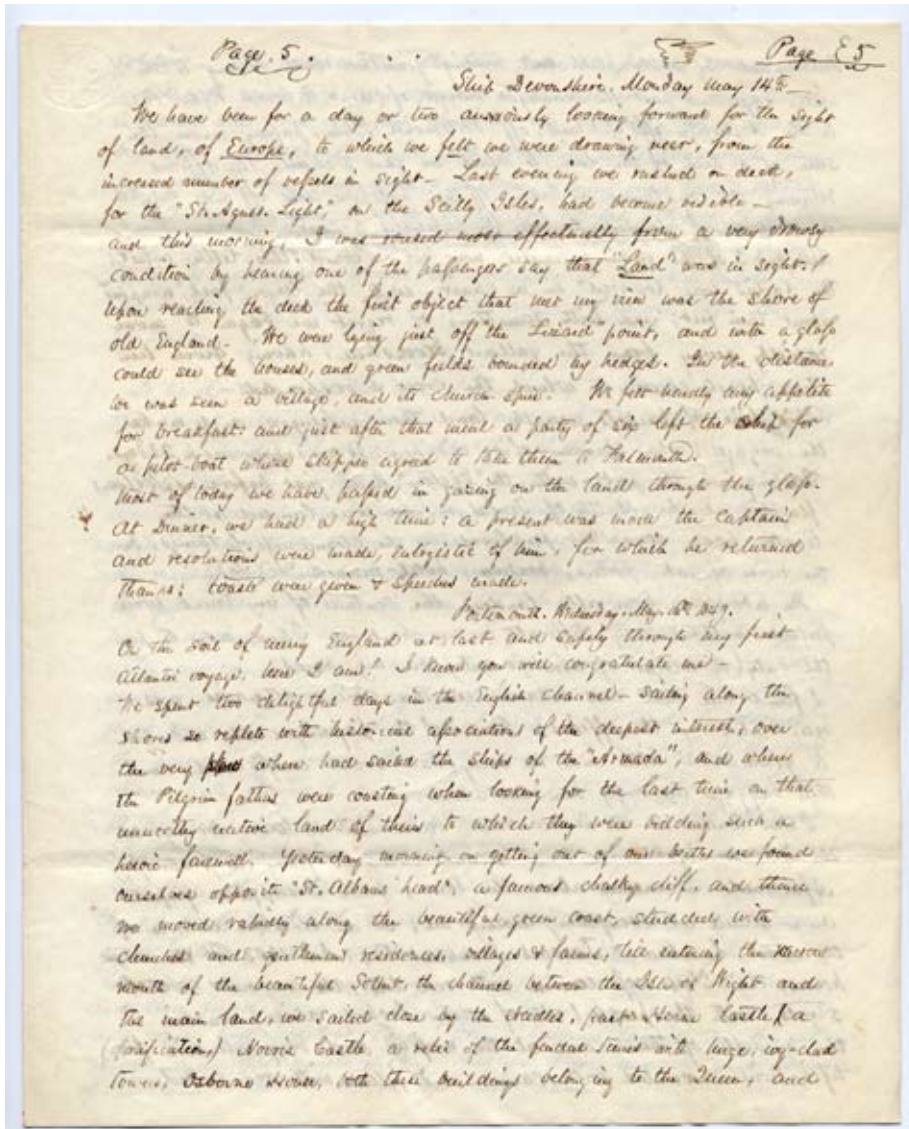 Page. 5. Page 5
Ship Devonshire. Monday May 14th
We have been for a day or two anxiously looking forward for the sight
of land, of Europe, to which we felt we were drawing near, from the
increased number of vessels in sight - Last evening we rushed on deck,
for the "St. Agnes. Light," on the Scilly Isles, had become visible -
and this morning, I was roused most effectually from a very drowsy
condition by hearing one of the passengers say that "Land" was in sight.
Upon reaching the deck the first object that met my view was the shore of
old England - We were lying just off "the Lizard" point, and with a glass
could see the houses, and green fields bounded by hedges. In the distance
we was seen a village, and its church spire. We felt hardly any appetite
for breakfast: and just after that meal a party of six left the ship for
a pilot-boat whose skipper agreed to take them to Falmouth.
Most of today we have passed in gazing on the land through the glass.
At Dinner, we had a high time: a present was made the Captain
and resolutions were made, eulogistic of him, for which he returned
thanks: toasts were given & speeches made.
Portsmouth. Wednesday. May. 16th 1849.
On the soil of merry England at last and safely through my first
Atlantic voyage, here I am! I know you will congratulate me -
We spent two delightful days in the English channel - sailing along the
shores so replete with historical associations of the deepest interest, over
the very where had sailed the ships of the "Armada", and where
the Pilgrim fathers were coasting when looking for the last time on that
unworthy native land of theirs to which they were bidding such a
heroic farewell. Yesterday morning on getting out of our berths we found
ourselves opposite "St. Albans head", a famous chalky cliff, and thence
we moved rapidly along the beautiful green coast, studded with
churches and gentlemens residences, villages & farms, till entering the narrow
mouth of the beautiful Solent, the channel between the Isle of Wight and
the main land, we sailed close by the Needles, past Castle, (a
fortification,) Norris Castle, a relic of the feudal times with huge, ivy-clad
towers, Osborne House, both these buildings belonging to the Queen, and